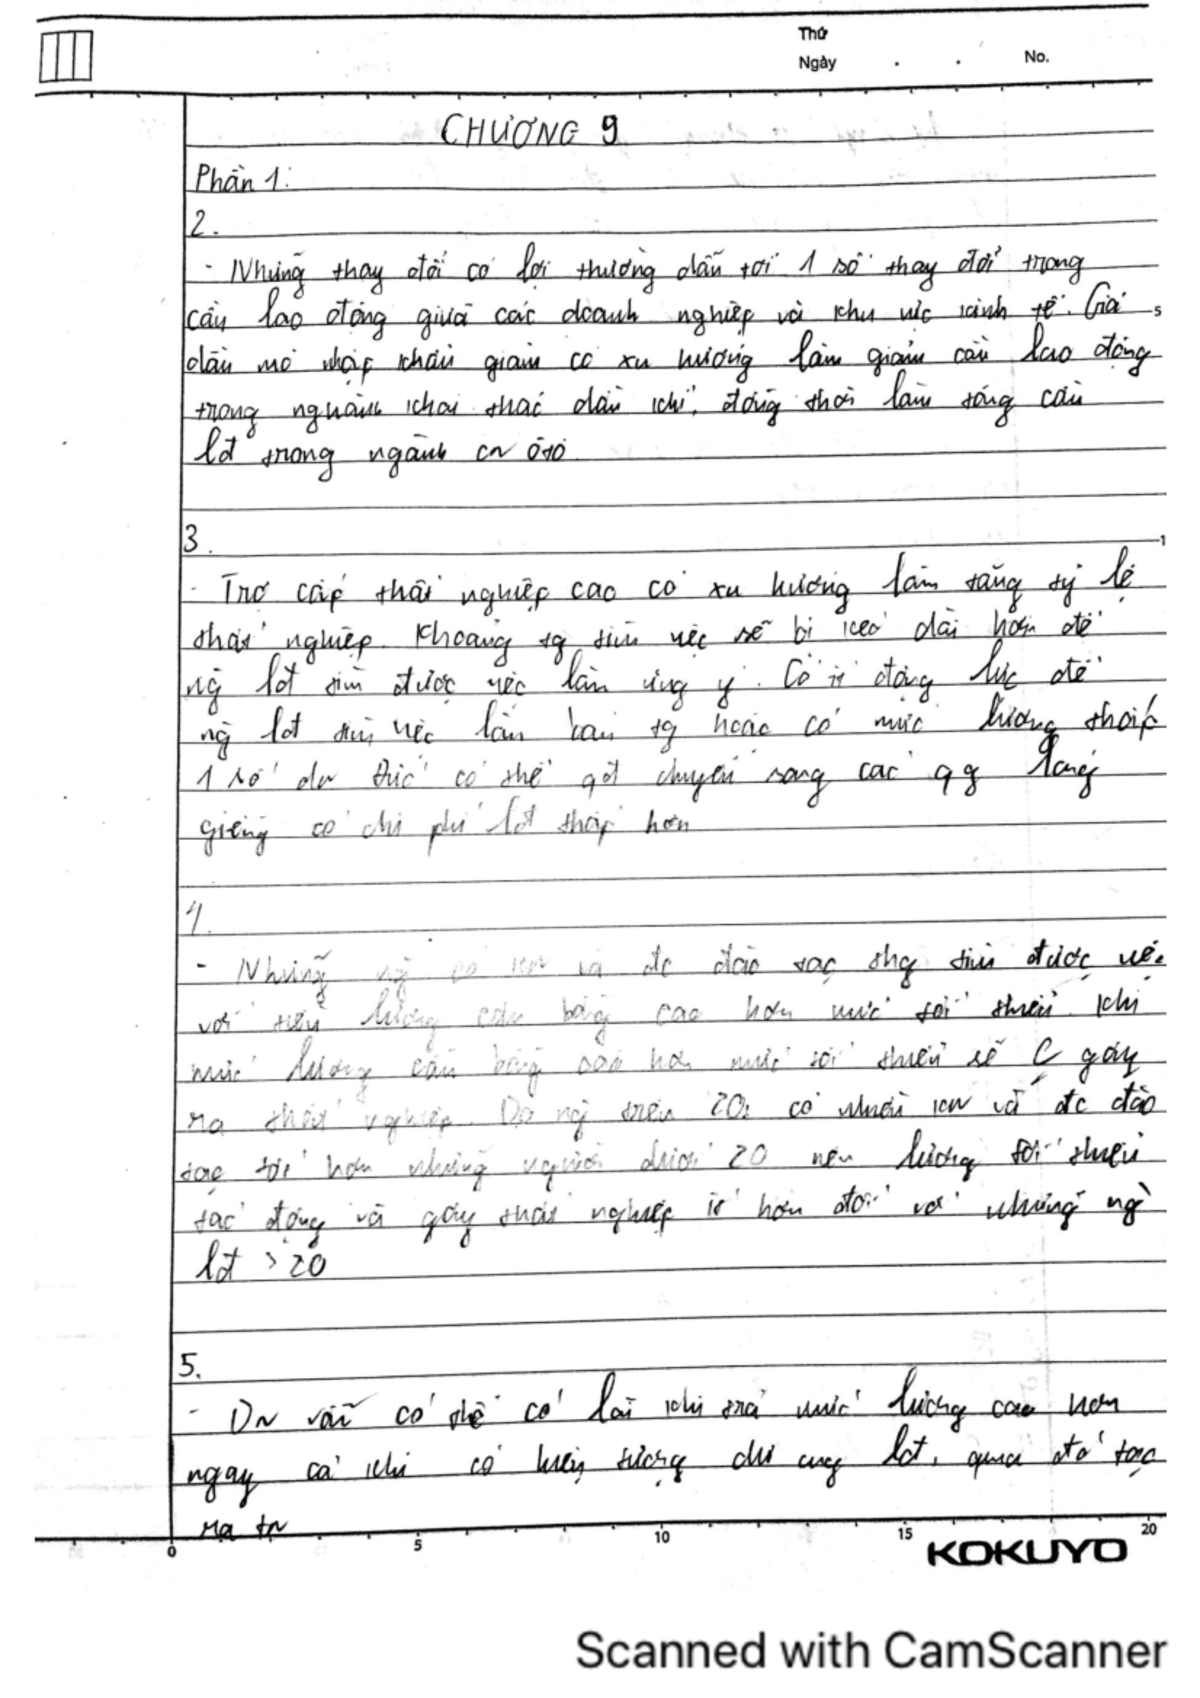 Thứ
Ngày . . No.
CHƯƠNG 9
Phần 1:
2.
- Những thay đổi có lợi thường dẫn tới 1 số thay đổi trong
cầu lao động giữa các doanh nghiệp và khu vực kinh tế. Giá
5
dầu mỏ nhập khẩu giảm có xu hướng làm giảm cầu lao động
trong nghành khai thác dầu khí, đồng thời làm tăng cầu
lđ trong ngành cn ôtô
3.
1
- Trợ cấp thất nghiệp cao có xu hướng làm tăng tỷ lệ
thất nghiệp. Khoảng tg tìm việc sẽ bị kéo dài hơn để
ng lđ tìm được việc làm ưng ý. Có ít động lực để
ng lđ tìm việc làm bán tg hoặc có mức lương thấp
1 số dn Đức có thể chuyển sang các qg láng
giềng có chi phí lđ thấp hơn
4.
- Những ng có kn và đc đào tạo thg tìm được việc
với tiền lương cân bằng cao hơn mức tối thiểu. Khi
mức lương cân bằng cao hơn mức tối thiểu sẽ gây
ra thất nghiệp. Do ng trên 20 có nhiều kn và đc đào
tạo tốt hơn những người dưới 20 nên lương tối thiểu
tác động và gây thất nghiệp ít hơn đối với những ng
lđ > 20
5.
- DN vẫn có thể có lãi khi trả mức lương cao hơn
ngay cả khi có hiện tượng dư cung lđ, qua đó tạo
ra tn
0 5 10 15 20
KOKUYO
Scanned with CamScanner